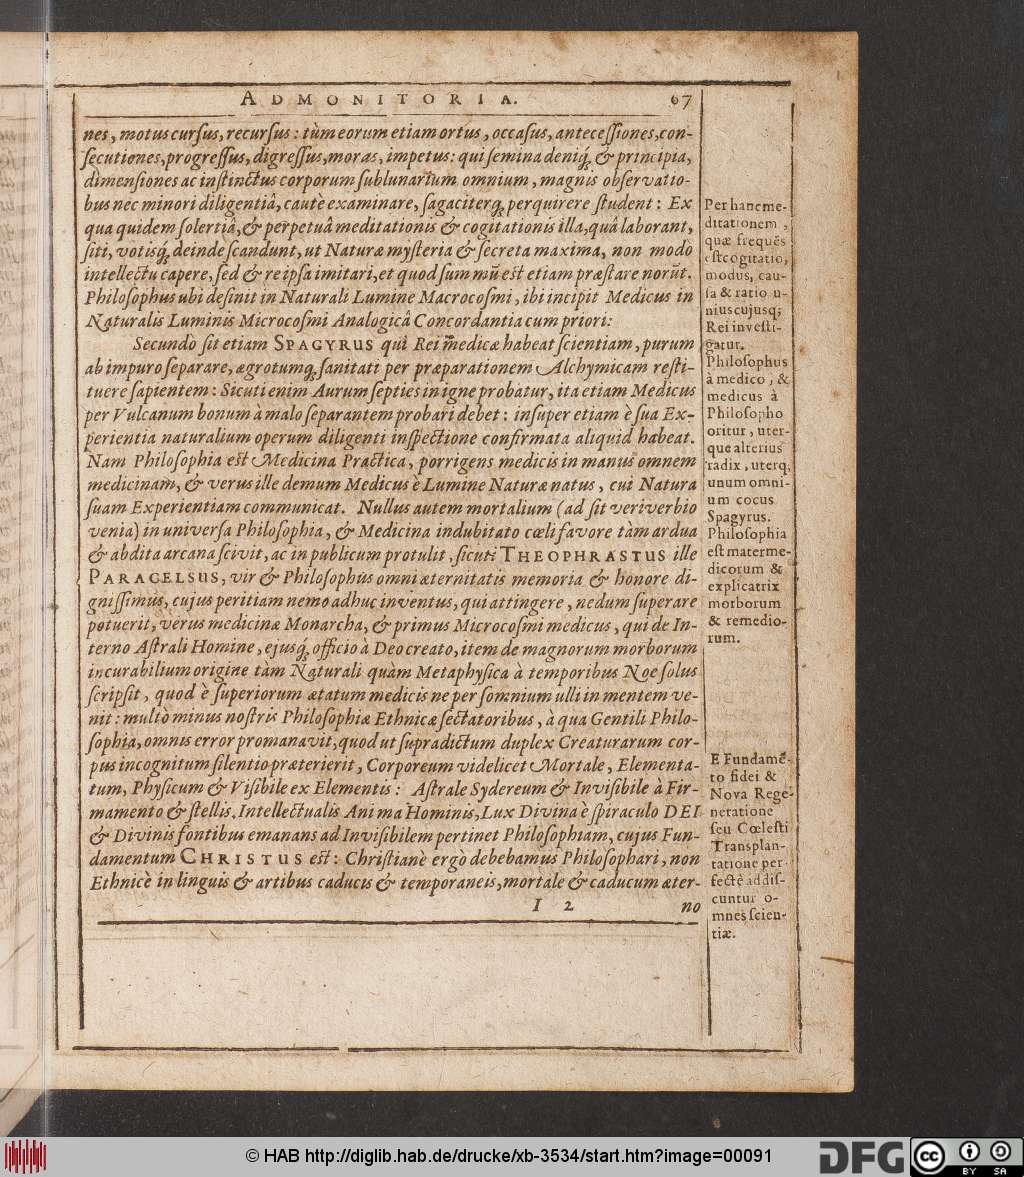 ADMONITORIA. 67
nes, motus cursus, recursus: tùm eorum etiam ortus, occasus, antecessiones, con-
secutiones, progressus, digressus, moras, impetus: qui semina deniq́; & principia,
dimensiones ac instinctus corporum sublunarium omnium, magnis observatio-
bus nec minori diligentiâ, cautè examinare, sagaciterq; perquirere student: Ex
qua quidem solertiâ, & perpetuâ meditationis & cogitationis illa, quâ laborant,
siti, votisq́; deinde scandunt, ut Naturæ mysteria & secreta maxima, non modò
intellectu capere, sed & reipsa imitari, et quod summũ est etiam præstare norũt.
Philosophus ubi desinit in Naturali Lumine Macrocosmi, ibi incipit Medicus in
Naturalis Luminis Microcosmi Analogicâ Concordantia cum priori:
Secundò sit etiam SPAGYRUS qui Rei medicæ habeat scientiam, purum
ab impuro separare, ægrotumq; sanitati per præparationem Alchymicam resti-
tuere sapientem: Sicuti enim Aurum septies in igne probatur, ita etiam Medicus
per Vulcanum bonum à malo separantem probari debet: insuper etiam è sua Ex-
perientia naturalium operum diligenti inspectione confirmata aliquid habeat.
Nam Philosophia est Medicina Practica, porrigens medicis in manus omnem
medicinam, & verus ille demum Medicus è Lumine Naturæ natus, cui Natura
suam Experientiam communicat. Nullus autem mortalium (ad sit veri verbio
venia) in universa Philosophia, & Medicina indubitato cœli favore tàm ardua
& abdita arcana scivit, ac in publicum protulit, sicuti THEOPHRASTUS ille
PARACELSUS, vir & Philosophus omni æternitatis memoria & honore di-
gnissimus, cujus peritiam nemo adhuc inventus, qui attingere, nedum superare
potuerit, verus medicinæ Monarcha, & primus Microcosmi medicus, qui de In-
terno Astrali Homine, ejusq́; officio à Deo creato, item de magnorum morborum
incurabilium origine tàm Naturali quàm Metaphysica à temporibus Noe solus
scripsit, quod è superiorum ætatum medicis ne per somnium ulli in mentem ve-
nit: multò minus nostris Philosophiæ Ethnicæ sectatoribus, à qua Gentili Philo-
sophia, omnis error promanavit, quod ut supradictum duplex Creaturarum cor-
pus incognitum silentio præterierit, Corporeum videlicet Mortale, Elementa-
tum, Physicum & Visibile ex Elementis: Astrale Sydereum & Invisibile à Fir-
mamento & stellis. Intellectualis Anima Hominis, Lux Divina è spiraculo DEI
& Divinis fontibus emanans ad Invisibilem pertinet Philosophiam, cujus Fun-
damentum CHRISTUS est: Christianè ergò debebamus Philosophari, non
Ethnicè in linguis & artibus caducis & temporaneis, mortale & caducum æter-
I 2 no
Per hanc me-
ditationem,
quæ frequẽs
est cogitatio,
modus, cau-
sa & ratio u-
niuscujusq;
Rei investi-
gatur.
Philosophus
à medico, &
medicus à
Philosopho
oritur, uter-
que alterius
radix, uterq.
unum omni-
um cocus
Spagyrus.
Philosophia
est mater me-
dicorum &
explicatrix
morborum
& remedio-
rum.
E Fundamẽ-
to fidei &
Nova Rege-
neratione
seu Cœlesti
Transplan-
tatione per
fectè addis-
cuntur o-
mnes scien-
tiæ.
© HAB http://diglib.hab.de/drucke/xb-3534/start.htm?image=00091
DFG
cc BY SA